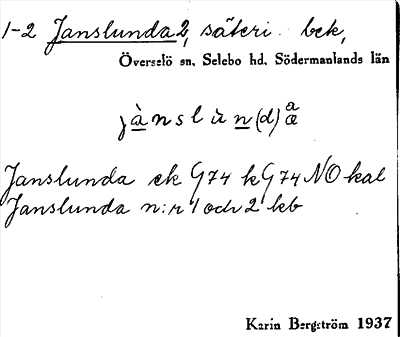 1-2 Janslunda 2, säteri. bek,
Överselö sn, Selebo hd, Södermanlands län
jànslùn(d)a
Janslunda ek G74 k G74 NO kal
Janslunda n:r 1 och 2 kb
Karin Bergström 1937